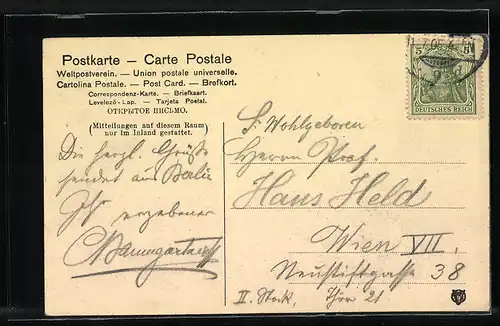 Postkarte – Carte Postale
Weltpostverein. — Union postale universelle.
Cartolina Postale. — Post Card. — Brefkort.
Correspondenz-Karte. — Briefkaart.
Levelező-Lap. — Tarjeta Postal.
ОТКРЫТОЕ ПИСЬМО.
(Mitteilungen auf diesem Raum)
nur im Inland gestattet.
Die herzl. Grüße
sendet aus Berlin
Ihr ergebener
5 5
DEUTSCHES REICH
S. Wohlgeboren
Herrn Prof.
Hans Held
Wien VII.
Neustiftgasse 38
II. Stock, Thür 21